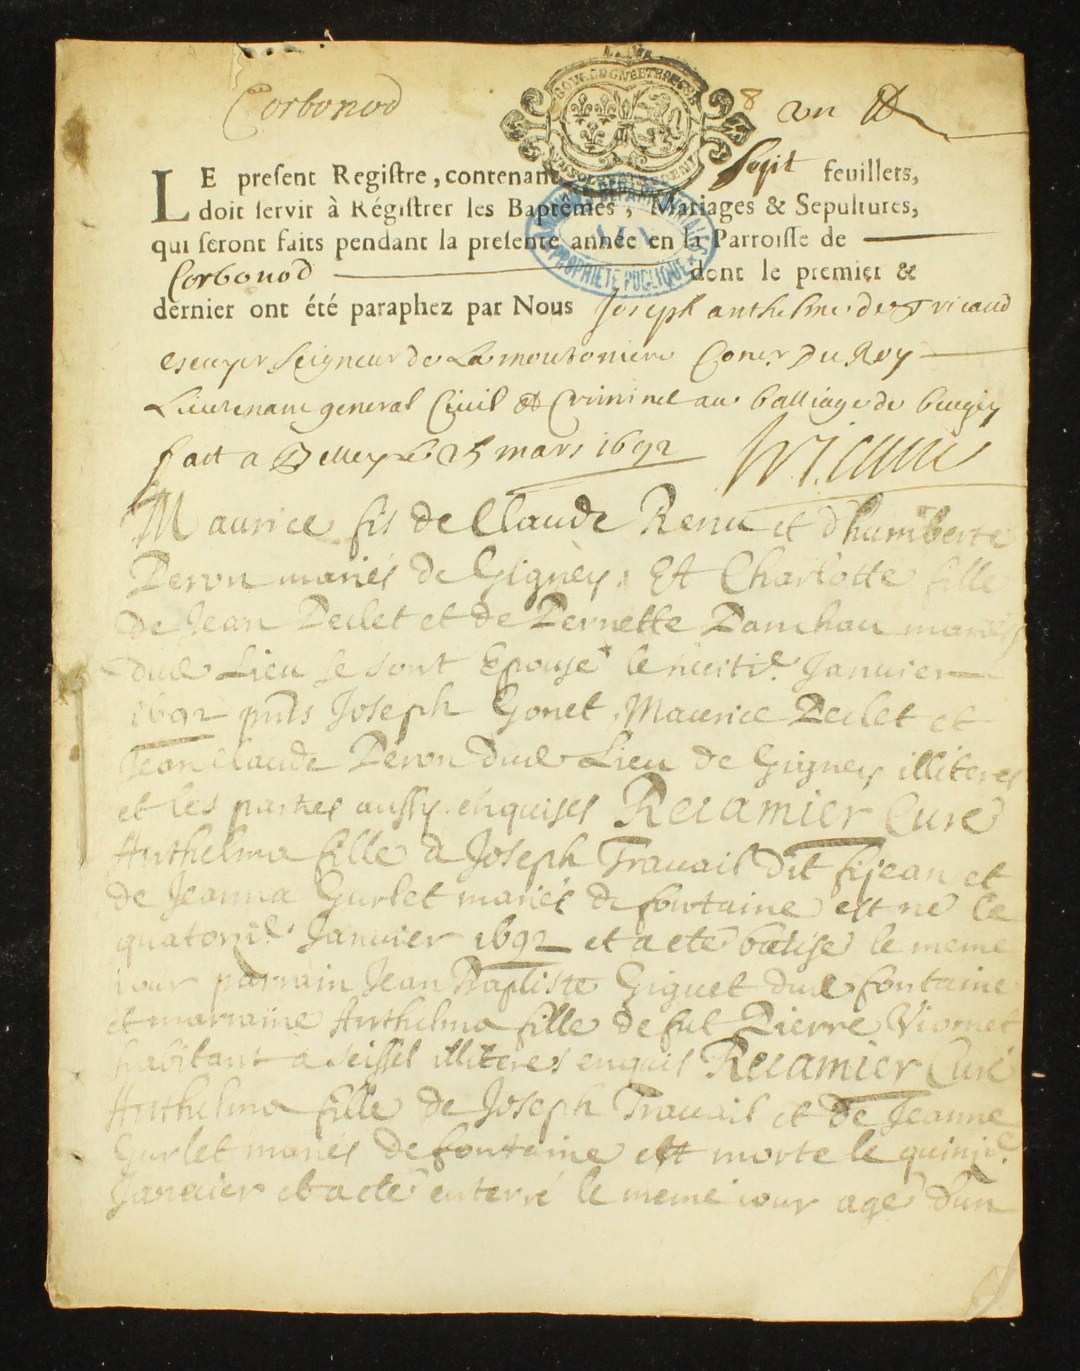 Corbonod
8
un
LE present Registre, contenant Sept feuillets,
doit servir à Régistrer les Baptêmes, Mariages & Sepultures,
qui seront faits pendant la presente année en la Parroisse de
Corbonod dont le premier &
dernier ont été paraphez par Nous Joseph anthelme de Tricaud
escuyer seigneur de La moutonniere Coner Du Roy
Lieutenant general Civil et Criminel au balliage de beugey
fait a Belley le 25 mars 1692 Tricaud
Maurice fis de Claude Renu et d'humberte
Peron mariés de Gigney, Et Charlotte fille
de Jean Peclet et de Pernette Panchau mariés
dud Lieu se sont Epousé le Janvier
1692 pnts Joseph Gonet, Maurice Peclet et
Jean Claude Peron dud Lieu de Gigney illiteres
et les parties aussy enquises Recamier Curé
Anthelma fille a Joseph Travail dit fijean et
de Jeanna Gurlet mariés de fontaine est ne le
quatorzie Janvier 1692 et a eté batisé le meme
iour parrain Jean Baptiste Giguet dud fontaine
et marraine Anthelma fille de fut Pierre Viomet
habitant a Seissel illiteres enquis Recamier Curé
Anthelma fille de Joseph Travail et de Jeanne
Gurlet mariés de fontaine est morte le quinzie
Janvier et a eté enterré le meme iour agé d'un